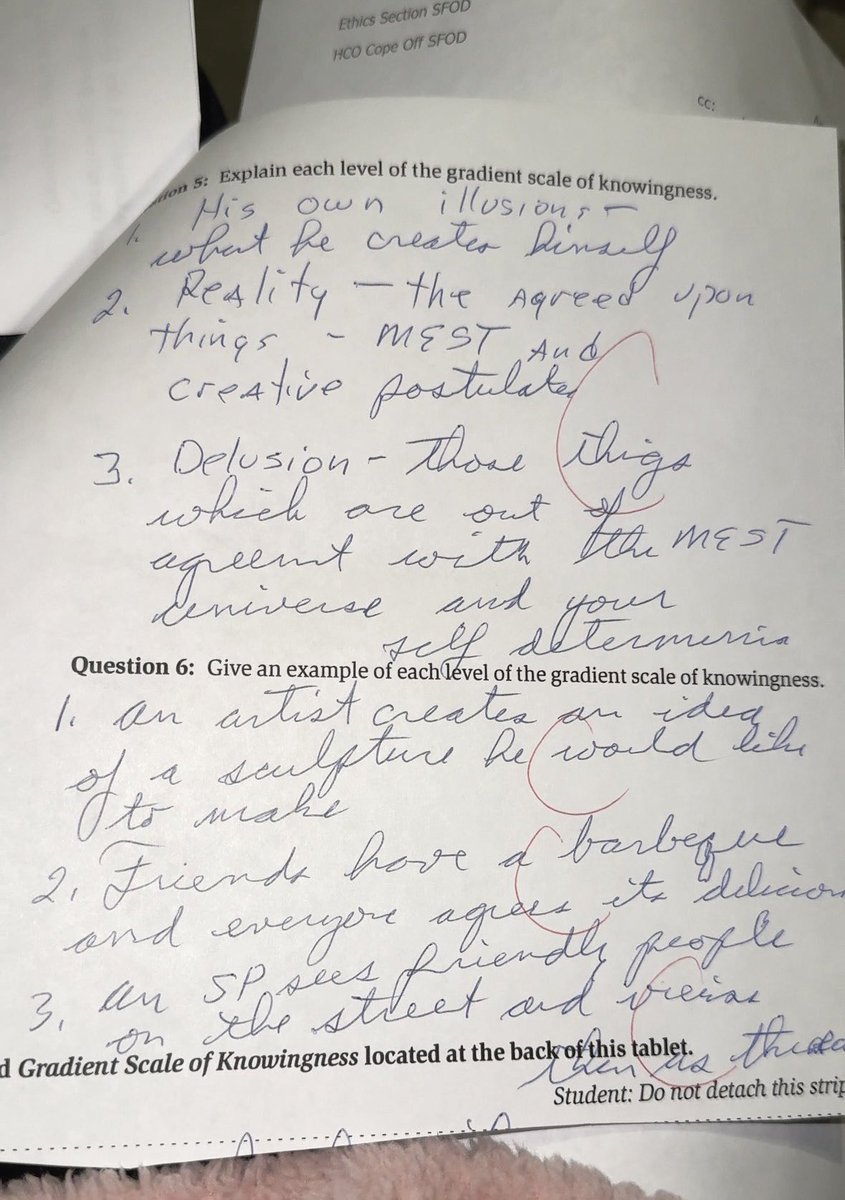 Ethics Section SFOD
HCO Cope Off SFOD
CC:
5: Explain each level of the gradient scale of knowingness.
1. His own illusions –
what he creates himself
2. Reality – the agreed upon
things – MEST and
creative postulates
3. Delusion – those thigs
which are out of
agreemt with the MEST
universe and your
self
Question 6: Give an example of each level of the gradient scale of knowingness.
1. an artist creates an idea
of a sculpture he would like
to make
2. Friends have a barbeque
and everyone agrees its
3. an SP sees friendly people
on the street and views
d Gradient Scale of Knowingness located at the back of this tablet.
them as
Student: Do not detach this strip